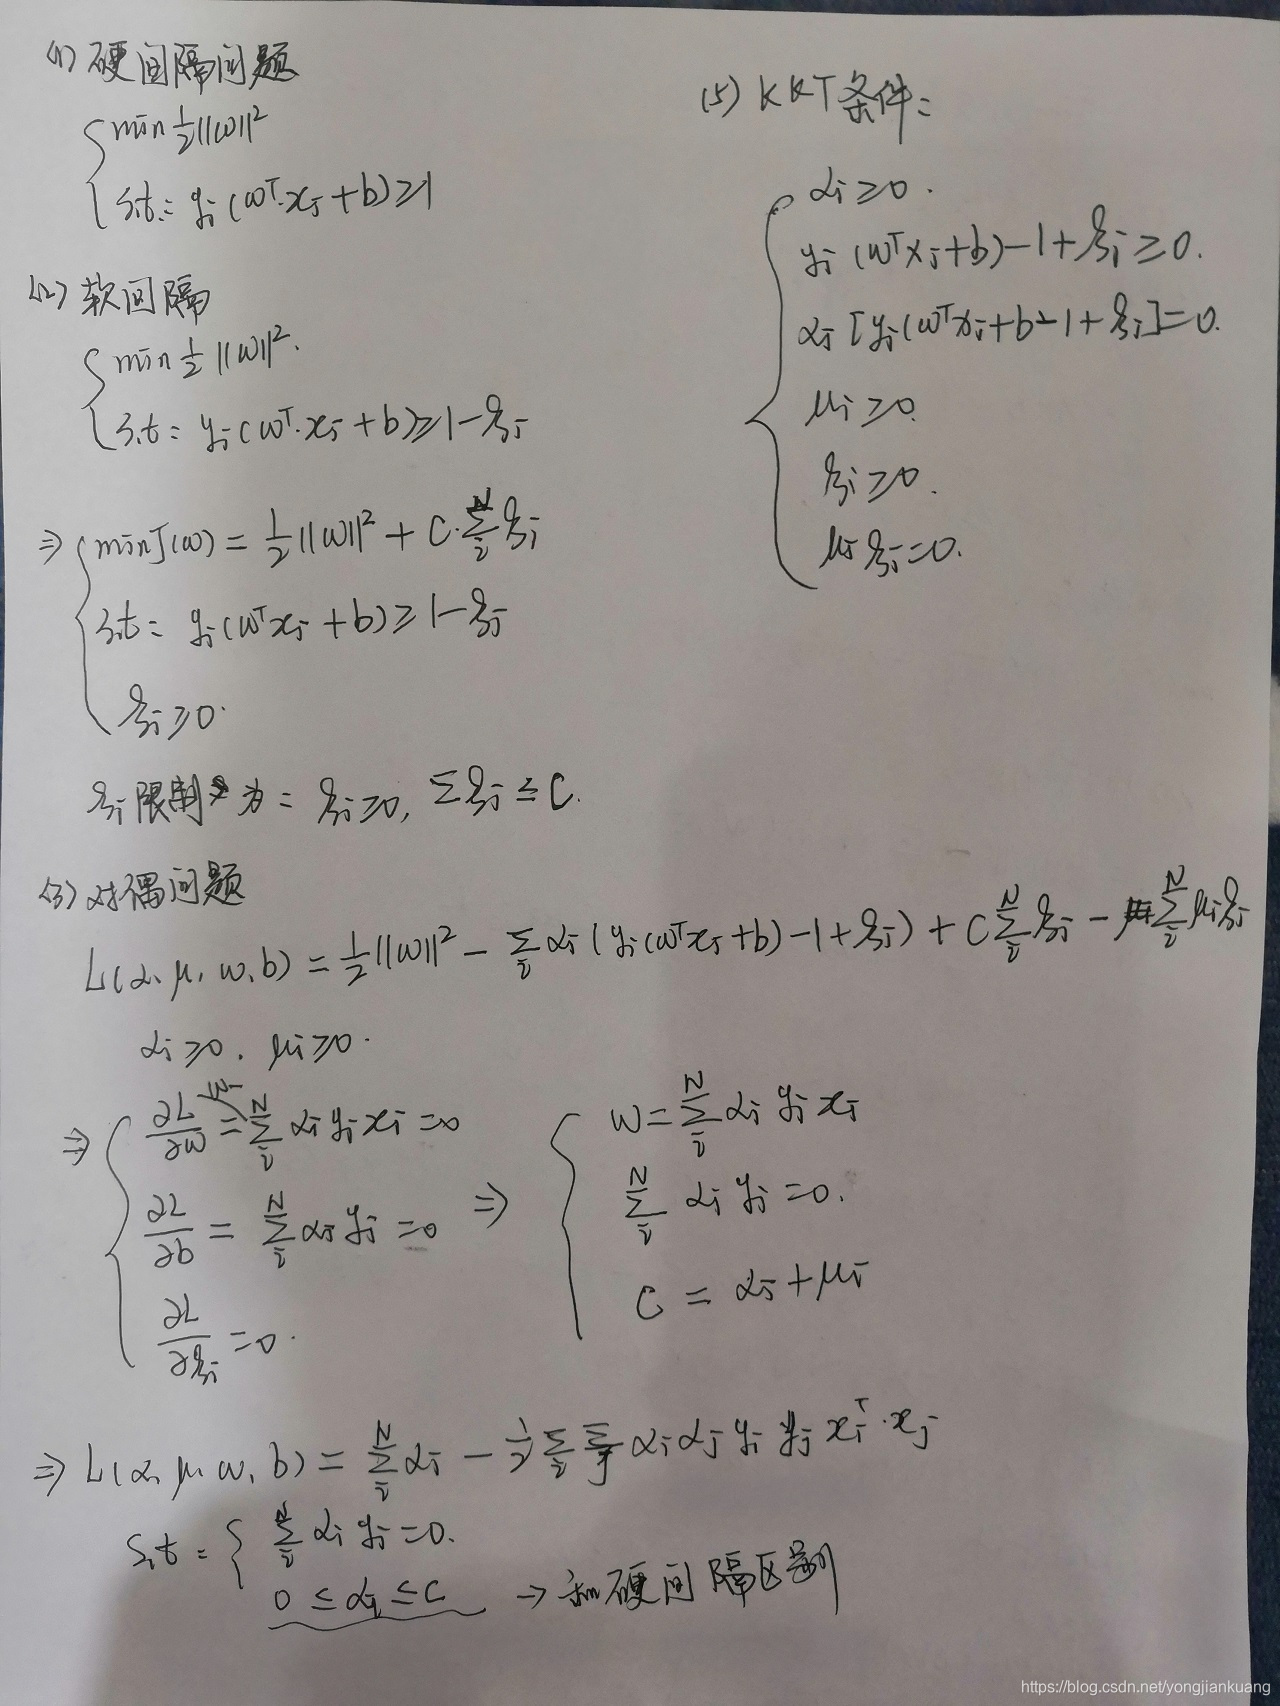 (1) 硬间隔问题
min ½||w||²
s.t: yᵢ(wᵀ·xᵢ+b)≥1
(2) 软间隔
min ½||w||².
s.t: yᵢ(wᵀ·xᵢ+b)≥1-ξᵢ
⇒ min J(w) = ½||w||² + C·∑ᵢᴺ ξᵢ
s.t: yᵢ(wᵀxᵢ+b)≥1-ξᵢ
ξᵢ≥0.
ξᵢ限制为: ξᵢ≥0, ∑ξᵢ≤C.
(3) 对偶问题
L(α, μ, w, b) = ½||w||² - ∑ᵢ αᵢ(yᵢ(wᵀxᵢ+b)-1+ξᵢ) + C∑ᵢᴺ ξᵢ - ∑ᵢᴺ μᵢξᵢ
αᵢ≥0, μᵢ≥0.
⇒ ∂L/∂w = w- ∑ᵢᴺ αᵢyᵢxᵢ=0
∂L/∂b = ∑ᵢᴺ αᵢyᵢ=0
∂L/∂ξᵢ =0.
⇒ w=∑ᵢᴺ αᵢyᵢxᵢ
∑ᵢᴺ αᵢyᵢ=0.
C = αᵢ+μᵢ
⇒ L(α, μ, w, b) = ∑ᵢᴺ αᵢ - ½∑ᵢ∑ⱼ αᵢαⱼyᵢyⱼxᵢᵀ·xⱼ
s.t: ∑ᵢᴺ αᵢyᵢ=0.
0≤αᵢ≤C → 和硬间隔区别
(5) KKT条件:
αᵢ≥0.
yᵢ(wᵀxᵢ+b)-1+ξᵢ≥0.
αᵢ[yᵢ(wᵀxᵢ+b-1+ξᵢ]=0.
μᵢ≥0.
ξᵢ≥0.
μᵢξᵢ=0.
https://blog.csdn.net/yongjiankuang